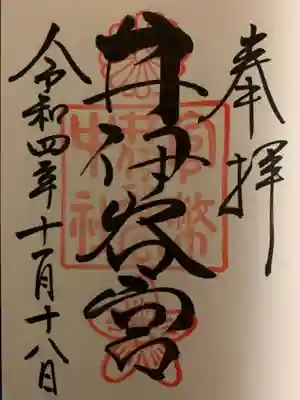 奉拝
井伊谷宮
官幣
中社
令和四年十一月十八日